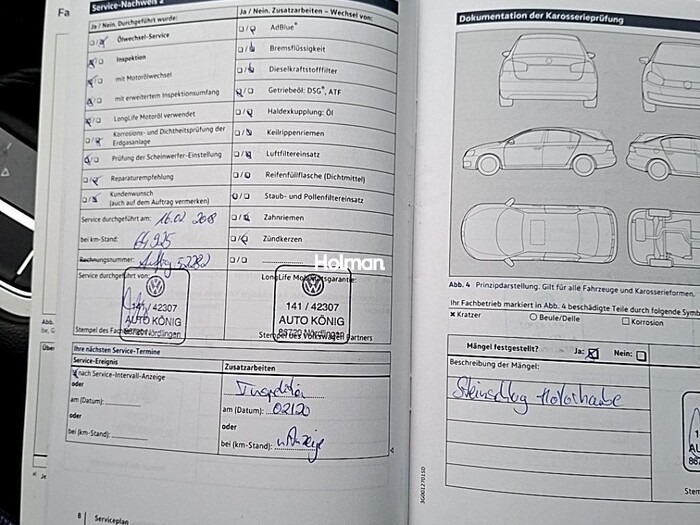 Fa
Service-Nachweis 2
Ja / Nein. Durchgeführt wurde:
Ölwechsel-Service
Inspektion
mit Motorölwechsel
mit erweitertem Inspektionsumfang
LongLife Motoröl verwendet
Korrosions- und Dichtheitsprüfung der
Erdgasanlage
Prüfung der Scheinwerfer-Einstellung
Reparaturempfehlung
Kundenwunsch
(auch auf dem Auftrag vermerken)
Service durchgeführt am: 16.02 2018
bei km-Stand: 64925
Rechnungsnummer: Auftrag 52282
Service durchgeführt von:
141 / 42307
AUTO KÖNIG
86720 Nördlingen
Ja / Nein. Zusatzarbeiten – Wechsel von:
AdBlue®
Bremsflüssigkeit
Dieselkraftstofffilter
Getriebeöl: DSG®, ATF
Haldexkupplung: Öl
Keilrippenriemen
Luftfiltereinsatz
Reifenfüllflasche (Dichtmittel)
Staub- und Pollenfiltereinsatz
Zahnriemen
Zündkerzen
Holman
LongLife Mobilitätsgarantie:
141 / 42307
AUTO KÖNIG
86720 Nördlingen
Stempel des Volkswagen partners
Ihre nächsten Service-Termine
Service-Ereignis
nach Service-Intervall-Anzeige
oder
am (Datum):
oder
bei (km-Stand):
Zusatzarbeiten
Inspektion
am (Datum): 02/20
oder
bei (km-Stand): n Anzeige
8 Serviceplan
Dokumentation der Karosserieprüfung
Abb. 4 Prinzipdarstellung. Gilt für alle Fahrzeuge und Karosserieformen.
Ihr Fachbetrieb markiert in Abb. 4 beschädigte Teile durch folgende Symb
x Kratzer
○ Beule/Delle
□ Korrosion
Mängel festgestellt? Ja: Nein:
Beschreibung der Mängel:
Steinschlag Motorhaube
3G0012701SD